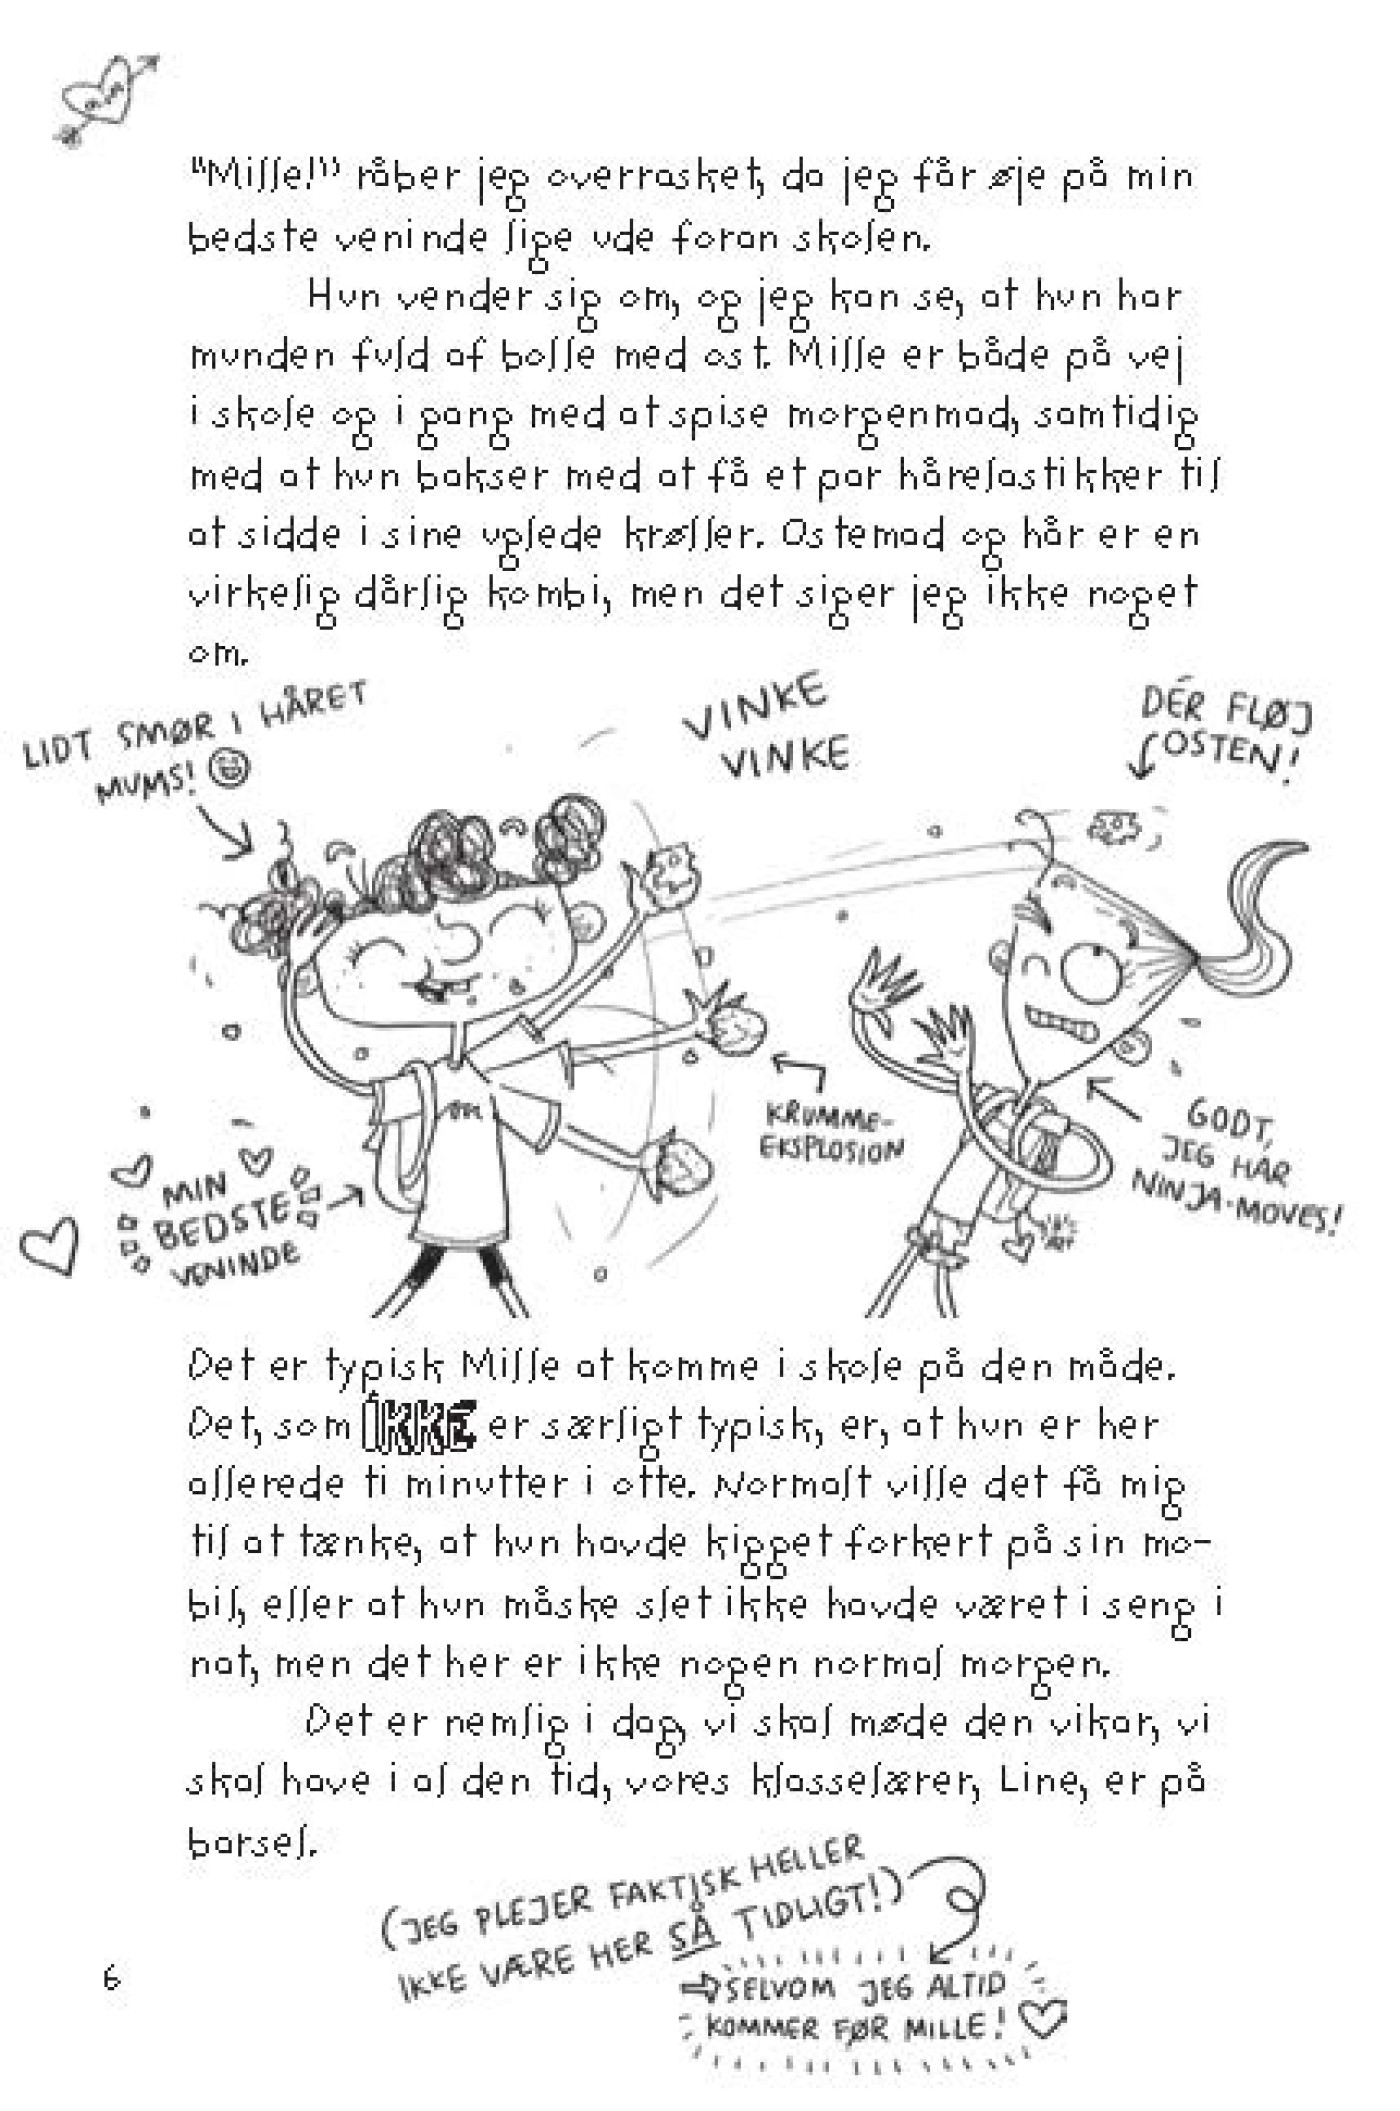 "Mille!" råber jeg overrasket, da jeg får øje på min
bedste veninde lige ude foran skolen.
Hun vender sig om, og jeg kan se, at hun har
munden fuld af bolle med ost. Mille er både på vej
i skole og i gang med at spise morgenmad, samtidig
med at hun bakser med at få et par hårelastikker til
at sidde i sine uglede krøller. Ostemad og hår er en
virkelig dårlig kombi, men det siger jeg ikke noget
om.
LIDT SMØR I HÅRET
MUMS!
VINKE
VINKE
DÉR FLØJ
OSTEN!
KRUMME-
EKSPLOSION
GODT,
JEG HAR
NINJA-MOVES!
MIN
BEDSTE
VENINDE
Det er typisk Mille at komme i skole på den måde.
Det, som IKKE er særligt typisk, er, at hun er her
allerede ti minutter i otte. Normalt ville det få mig
til at tænke, at hun havde kigget forkert på sin mo-
bil, eller at hun måske slet ikke havde været i seng i
nat, men det her er ikke nogen normal morgen.
Det er nemlig i dag, vi skal møde den vikar, vi
skal have i al den tid, vores klasselærer, Line, er på
barsel.
(JEG PLEJER FAKTISK HELLER
IKKE VÆRE HER SÅ TIDLIGT!)
SELVOM JEG ALTID
KOMMER FØR MILLE!
6